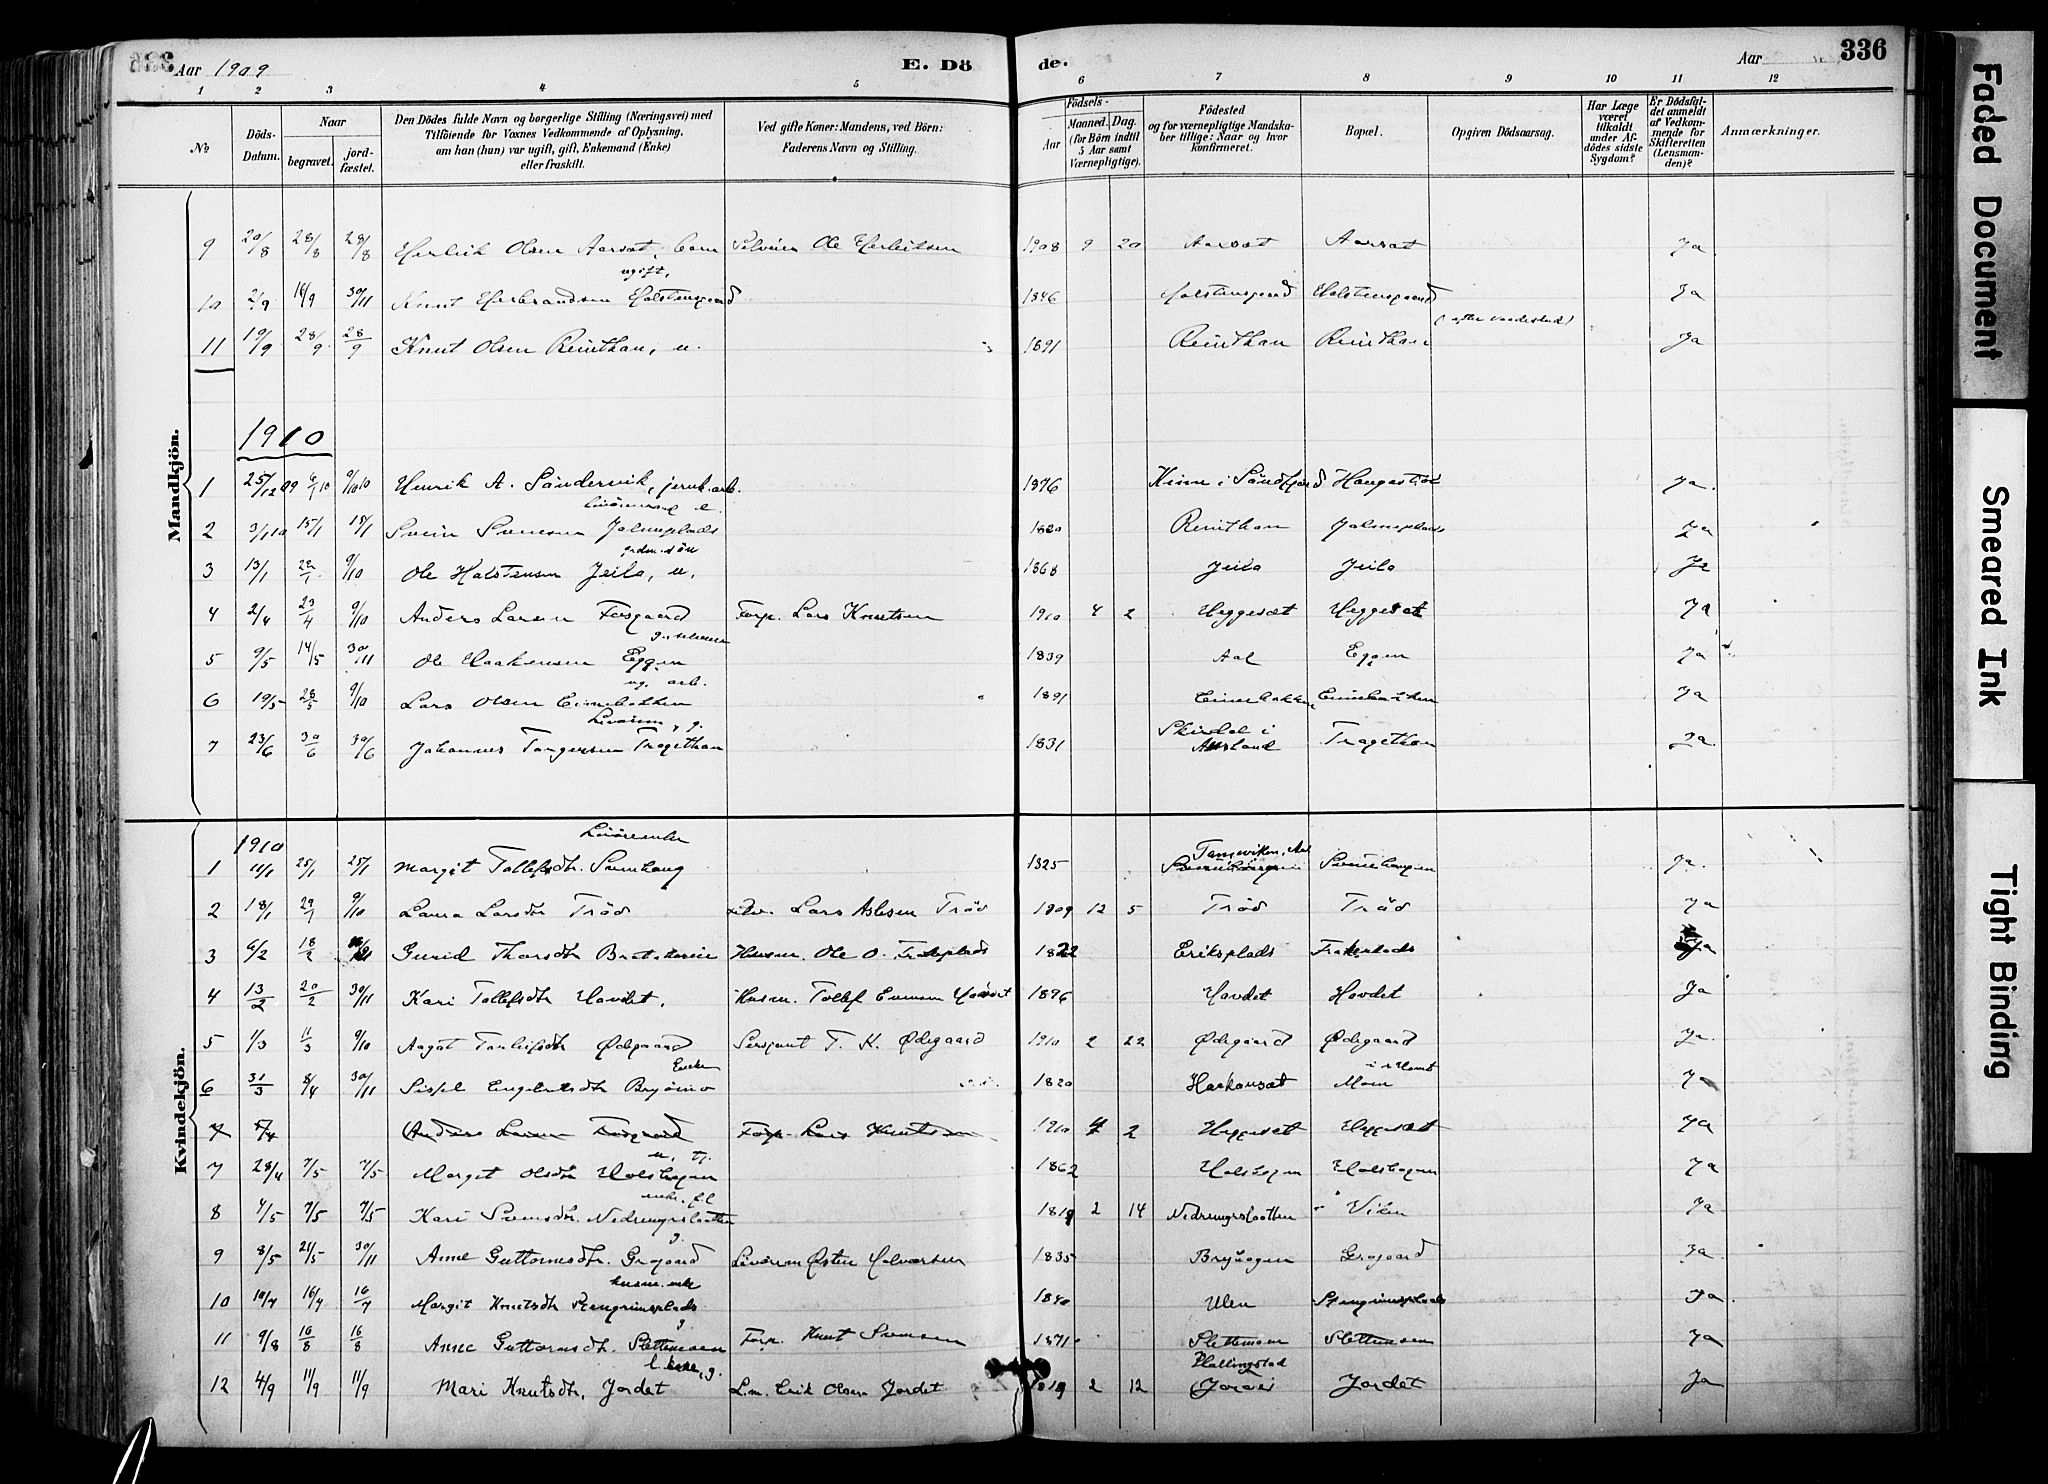 336
Aar 1909
E. Dö
de.
Aar
336
1 2 3 4 5 6 7 8 9 10 11 12
№
Döds-Datum.
Naar
begravet.
jordfæstet.
Den Dödes fulde Navn og borgerlige Stilling (Næringsvei) med
Tilföiende for Voxnes Vedkommende af Oplysning,
om han (hun) var ugift, gift, Enkemand (Enke)
eller fraskilt.
Ved gifte Koner: Mandens, ved Börn:
Faderens Navn og Stilling.
Födsels-
Aar
Maaned. Dag.
(for Börn indtil
5 Aar samt
Værnepligtige).
Födested
og for værnepligtige Mandskaber tillige: Naar og hvor
konfirmeret.
Bopæl.
Opgiven Dödsaarsag.
Har Læge
været
tilkaldt
under Afdödes sidste
Sygdom?
Er Dödsfaldet anmeldt
af Vedkommende for
Skifteretten
(Lensmanden)?
Anmærkninger.
Mandkjön.
9 20/8 28/8 28/8 Herleik Olsen Aarsæt, barn Selveier Ole Herleiksen 1908 9 20 Aarsæt Aarsæt Ja
ugift,
10 2/9 16/9 30/11 Knut Herbrandsen Holstensgaard 1846 Holstensgaard Holstensgaard Ja
11 19/9 28/9 28/9 Knut Olsen Reinthan, u. 1891 Reinthan Reinthan (efter vaadeskud) Ja
1910
1 25/12 09 6/1 10 9/10 10 Henrik A. Söndervik, jernb.arb. 1876 Kinn i Söndfjord Ja
2 3/1 10 15/1 15/1 Svein Svensen 1820 Reinthan Ja
gaardm.sön
3 13/1 22/1 9/10 Ole Halstensen Jeilo, u. 1868 Jeilo Jeilo Ja
4 2/4 23/4 9/10 Anders Larsen Fosgaard Forp. Lars Knutsen 1910 4 2 Heggesæt Heggesæt Ja
5 9/5 14/5 30/11 Ole Haakensen Eggen 1839 Aal Eggen Ja
ug. arb.
6 19/5 28/5 9/10 Lars Olsen Einebakken 1891 Einebakken Einebakken Ja
Livörem, g.
7 23/6 30/6 30/6 Johannes Torgersen Trogethan 1831 Skirdal i Aurland Trogethan Ja
Kvindekjön.
1910
Livöreenke
1 11/1 25/1 25/1 Margit Tollefsdtr. Svenhaug 1825 Svenehaugen Ja
2 18/1 29/1 9/10 Laura Larsdtr Tröo Selv. Lars Aslesen Tröo 1909 12 5 Tröo Tröo Ja
3 6/2 18/2 Gunid Thorsdtr Husm. Ole O. 1822 Eriksplads Ja
4 13/2 20/2 30/11 Kari Tollefsdtr Hovdet. Husm. Tollef Evensen Hovdet 1896 Hovdet Hovdet Ja
5 1/3 11/3 9/10 Aagot Torleifsdtr Ødegaard Sersjant T. K. Ødegaard 1910 2 22 Ødegaard Ødegaard Ja
Enke
6 31/3 8/4 30/11 Sissel Engebretsdtr 1820 Haakonsæt Moen Ja
7 Anders Larsen Fosgaard Forp. Lars Knutsen 1910 4 2 Heggesæt Heggesæt Ja
u, tj.
7 28/4 7/5 7/5 Margit Olsdtr Holshagen 1862 Holshagen Holshagen Ja
8 4/5 7/5 7/5 Kari Svensdtr. Nedrengrslaatten 1819 2 14 Nedrengrslaatten Viken Ja
g.
9 8/5 21/5 30/11 Anne Guttormsdtr. Grogaard Livörem Østen Halvorsen 1835 Bryhagen Grogaard Ja
husm. enke
10 10/7 16/7 16/7 Margit Knutsdtr Stengrimsplads 1840 Ulen Stengrimsplads Ja
g.
11 9/8 16/8 16/8 Anne Guttormsdtr. Slettemoen Forp. Knut Svensen 1871 Slettemoen Slettemoen Ja
12 4/9 11/9 11/9 Mari Knutsdtr, Jordet L.m. Erik Olsen Jordet 1819 2 12 Hallingstad Jordet Ja
Faded Document
Smeared Ink
Tight Binding